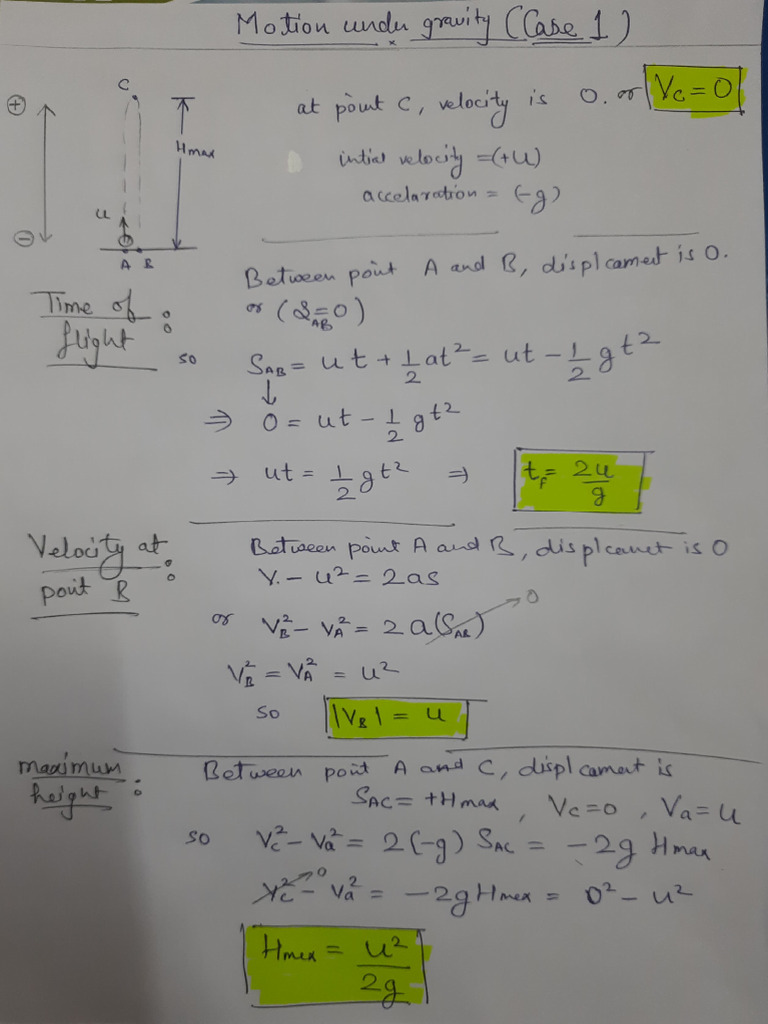 Motion under gravity (Case 1)
C
⊕
Hmax
u
⊖
A B
at point C, velocity is 0. or Vc = 0
intial velocity = (+u)
accelaration = (-g)
Time of flight :
Between point A and B, displcament is 0.
or (S_AB = 0)
so S_AB = ut + 1/2 at² = ut - 1/2 gt²
↓
⇒ 0 = ut - 1/2 gt²
⇒ ut = 1/2 gt² ⇒ t_F = 2u/g
Velocity at pout B :
Between point A and B, displcamet is 0
V. - u² = 2as
or V_B² - V_A² = 2a(S_AB) → 0
V_B² = V_A² = u²
so |V_B| = u
maximum height :
Between pout A and C, displcamet is
S_AC = +Hmax , Vc = 0 , Va = u
so Vc² - Va² = 2(-g) S_AC = -2g Hmax
Vc² → 0 - Va² = -2g Hmex = 0² - u²
Hmex = u²/2g